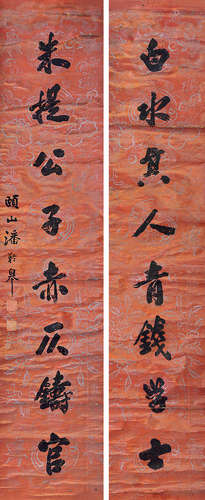 白水真人青錢學士
朱提公子赤仄鑄官
頤山潘齡皋